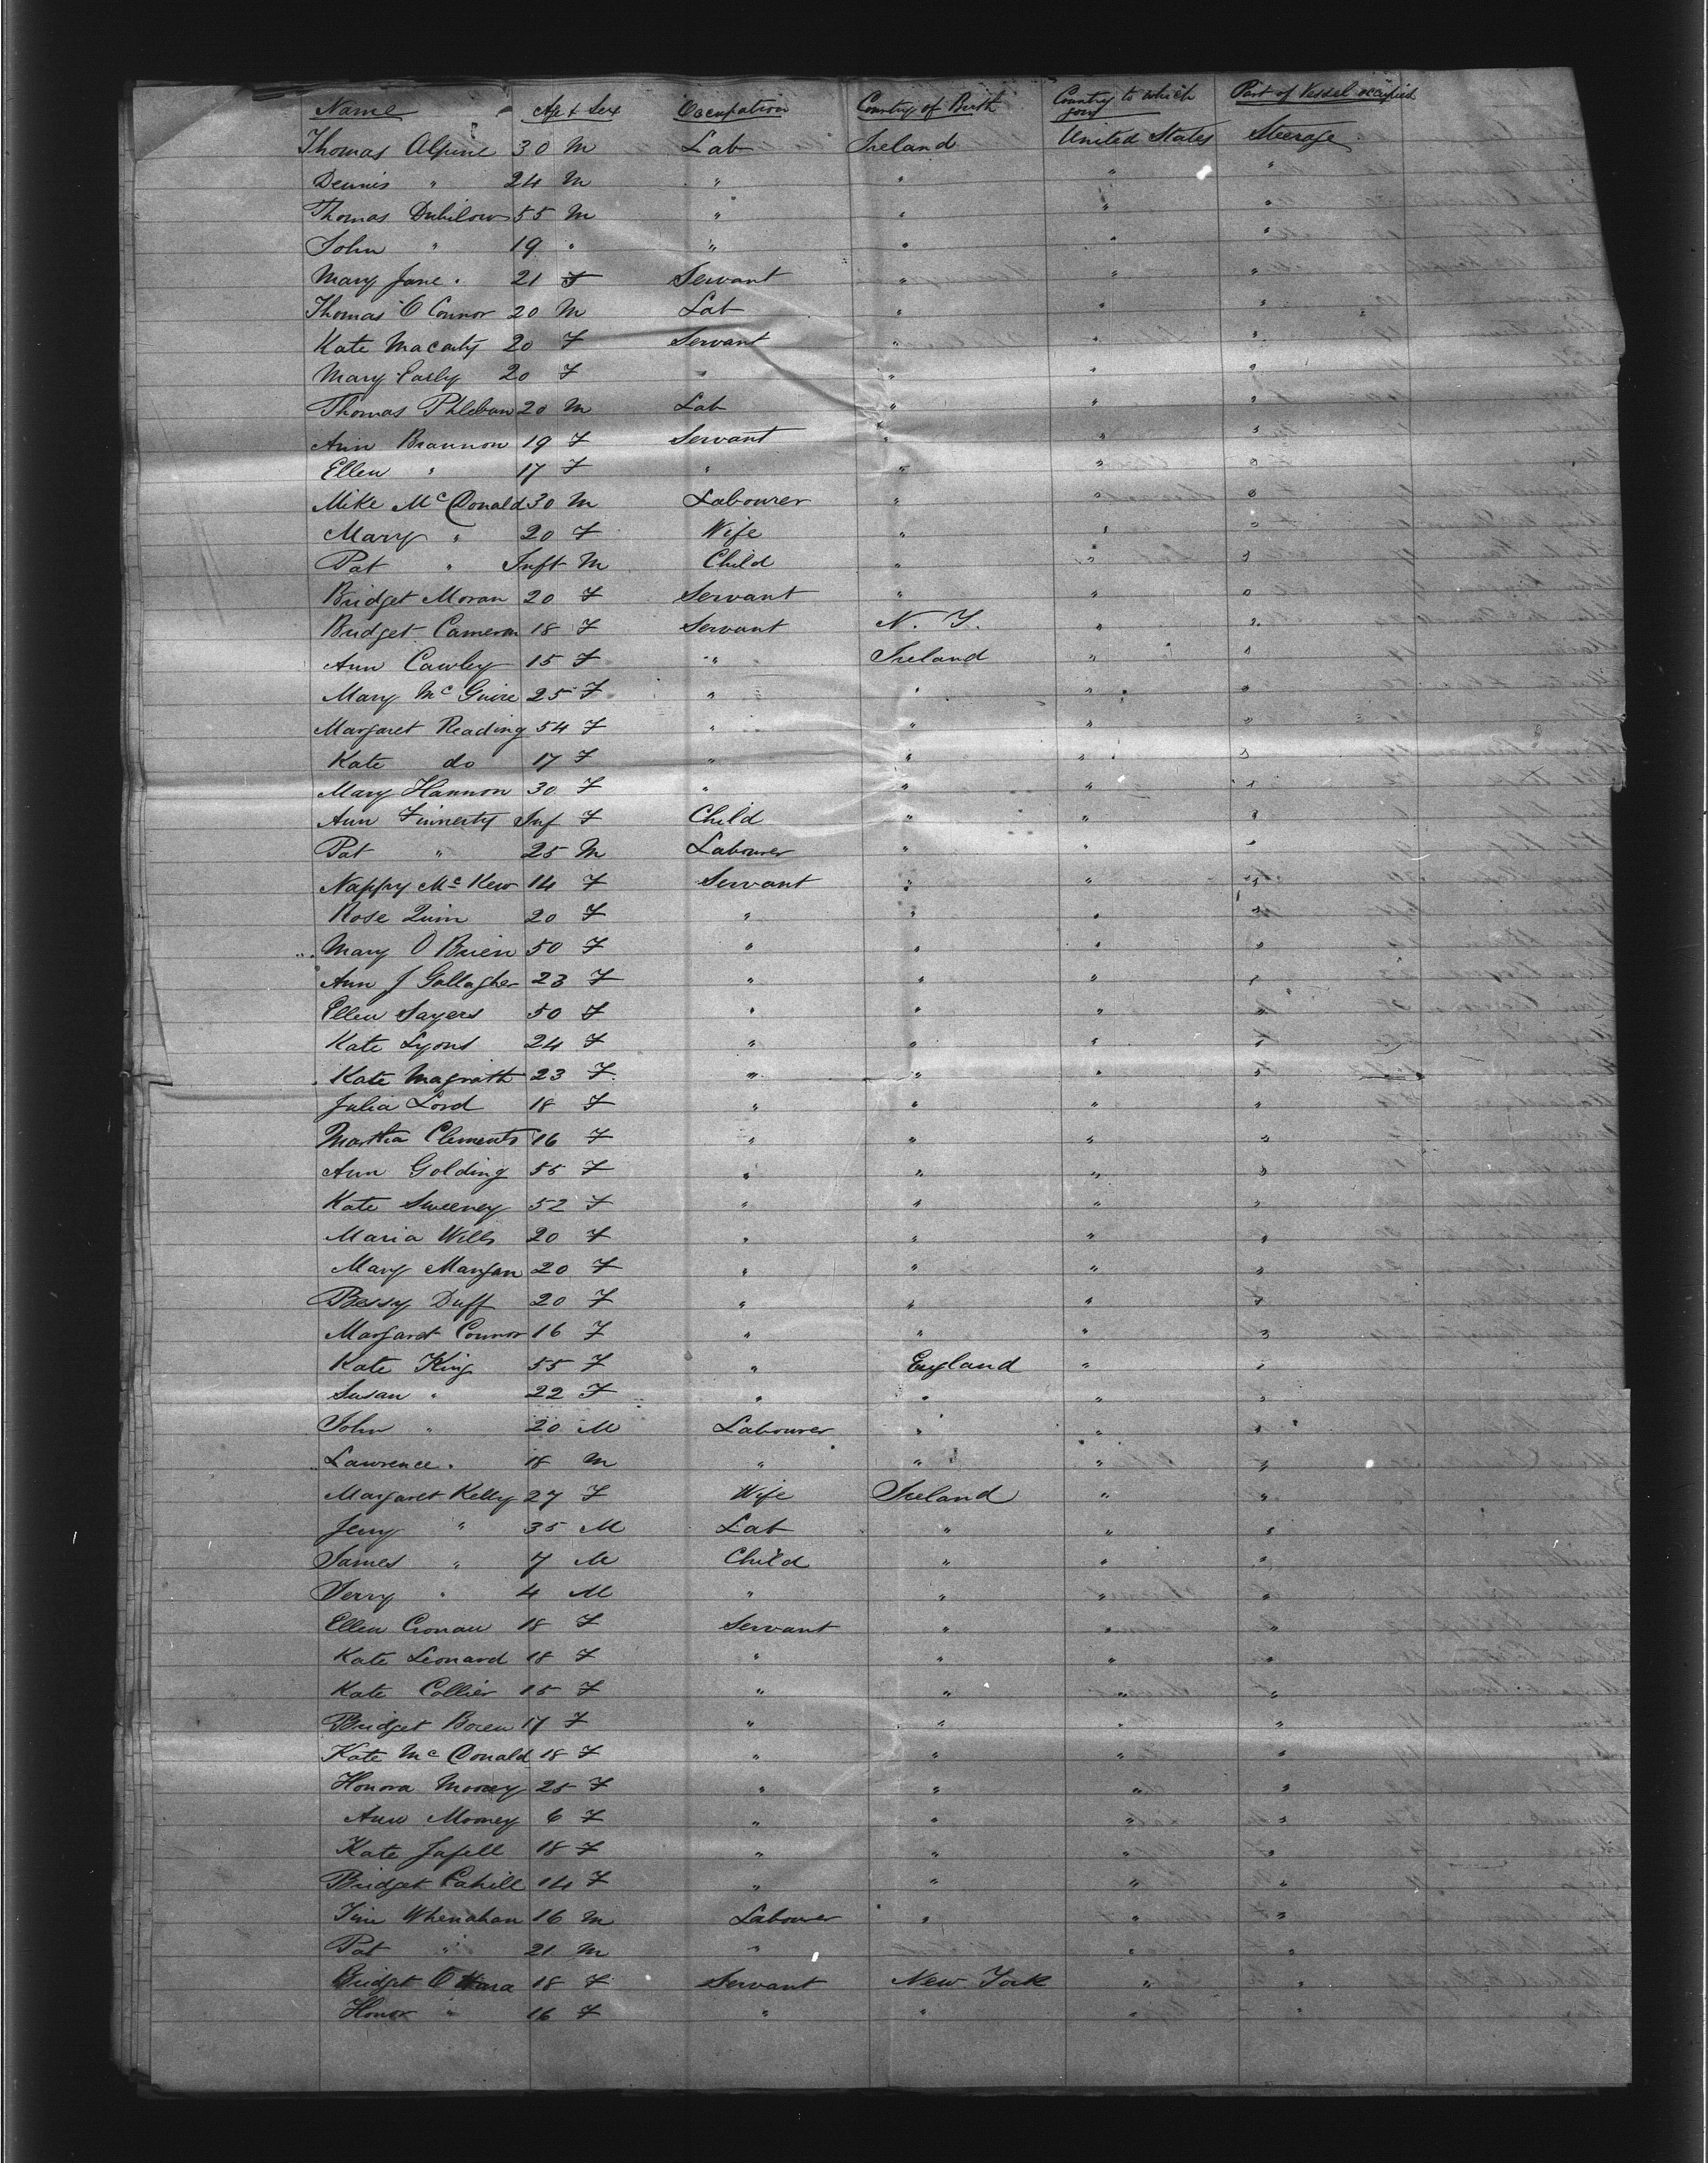 Name Age & Sex Occupation Country of Birth Country to which going Part of Vessel occupied
Thomas Alpine 30 M Lab Ireland United States Steerage
Dennis " 24 M " " " "
Thomas 55 M " " " "
John " 19 " " " " "
Mary Jane " 21 F Servant " " "
Thomas O Connor 20 M Lab " " "
Kate Macarty 20 F Servant " " "
Mary Early 20 F " " " "
Thomas Phleban 20 M Lab " " "
Ann Brannon 19 F Servant " " "
Ellen " 17 F " " " "
Mike McDonald 30 M Labourer " " "
Mary " 20 F Wife " " "
Pat " Inft M Child " " "
Bridget Moran 20 F Servant " " "
Bridget Cameron 18 F Servant N. Y. " "
Ann Cawley 15 F " Ireland " "
Mary McGuire 25 F " " " "
Margaret Reading 54 F " " " "
Kate do 17 F " " " "
Mary Hannon 30 F " " " "
Ann Finnerty Inf F Child " " "
Pat " 25 M Labourer " " "
Nappy McKew 14 F Servant " " "
Rose Quin 20 F " " " "
Mary O Brien 50 F " " " "
Ann J Gallagher 23 F " " " "
Ellen Sayers 50 F " " " "
Kate Lyons 24 F " " " "
Kate Magrath 23 F " " " "
Julia Lord 18 F " " " "
Martha Clements 16 F " " " "
Ann Golding 55 F " " " "
Kate Sweeney 52 F " " " "
Maria Wills 20 F " " " "
Mary Mangan 20 F " " " "
Bessy Duff 20 F " " " "
Margaret Connor 16 F " " " "
Kate King 55 F " England " "
Susan " 22 F " " " "
John " 20 M Labourer " " "
Lawrence " 18 M " " " "
Margaret Kelly 27 F Wife Ireland " "
Jerry " 35 M Lab " " "
James " 7 M Child " " "
Jerry " 4 M " " " "
Ellen Cronan 18 F Servant " " "
Kate Leonard 18 F " " " "
Kate Collier 15 F " " " "
Bridget Boren 17 F " " " "
Kate McDonald 18 F " " " "
Honora Mooney 25 F " " " "
Ann Mooney 6 F " " " "
Kate 18 F " " " "
Bridget Cahill 14 F " " " "
Tim Whenahan 16 M Labourer " " "
Pat " 21 M " " " "
Bridget O Hara 18 F Servant New York " "
Honor " 16 F " " " "